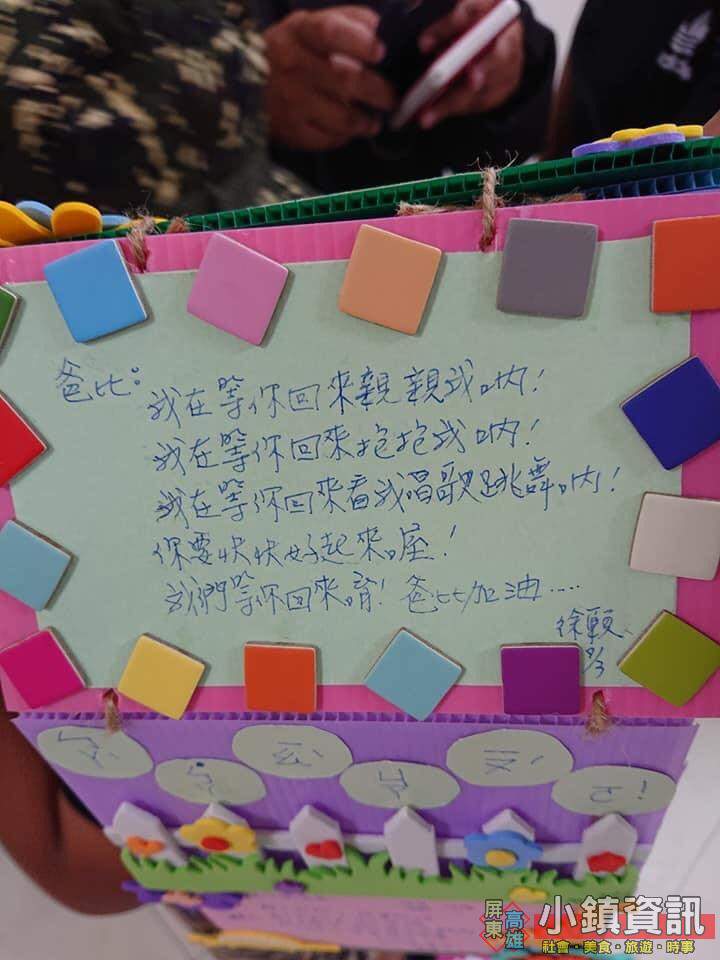 爸比:
我在等你回來親親我吶!
我在等你回來抱抱我吶!
我在等你回來看我唱歌跳舞吶!
你要快快好起來喔!
我們等你回來唷! 爸比加油....
徐願
8/3
屏東
高雄
小鎮資訊
社會・美食・旅遊・時事